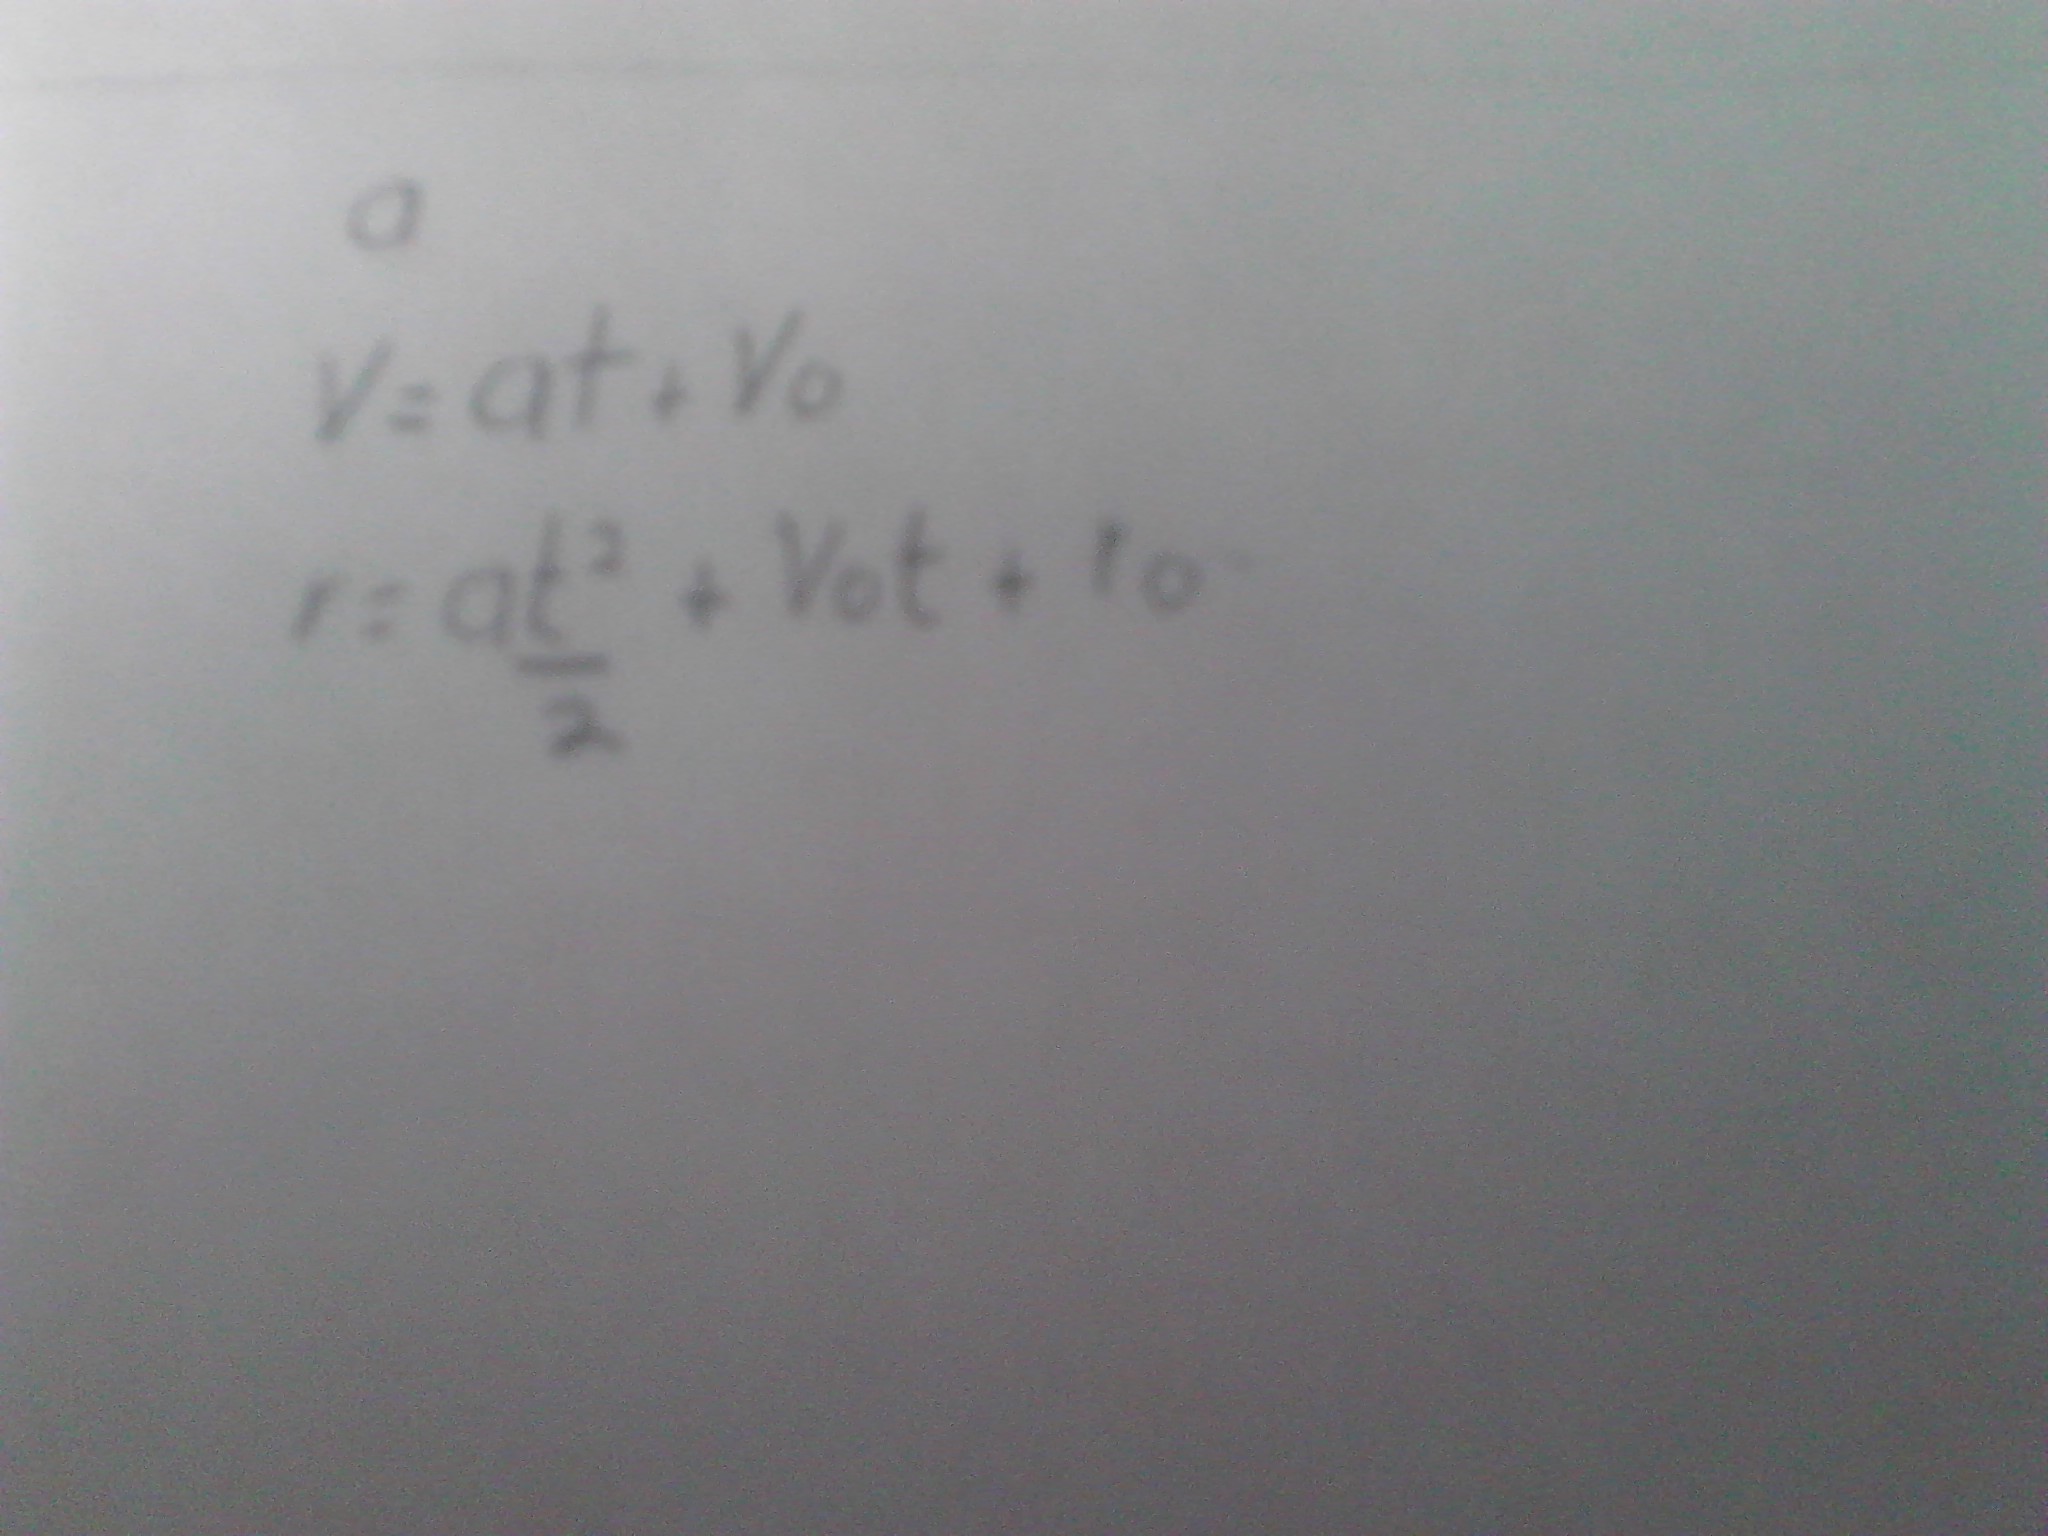 a
V = at + V₀
r = at²/2 + V₀t + r₀